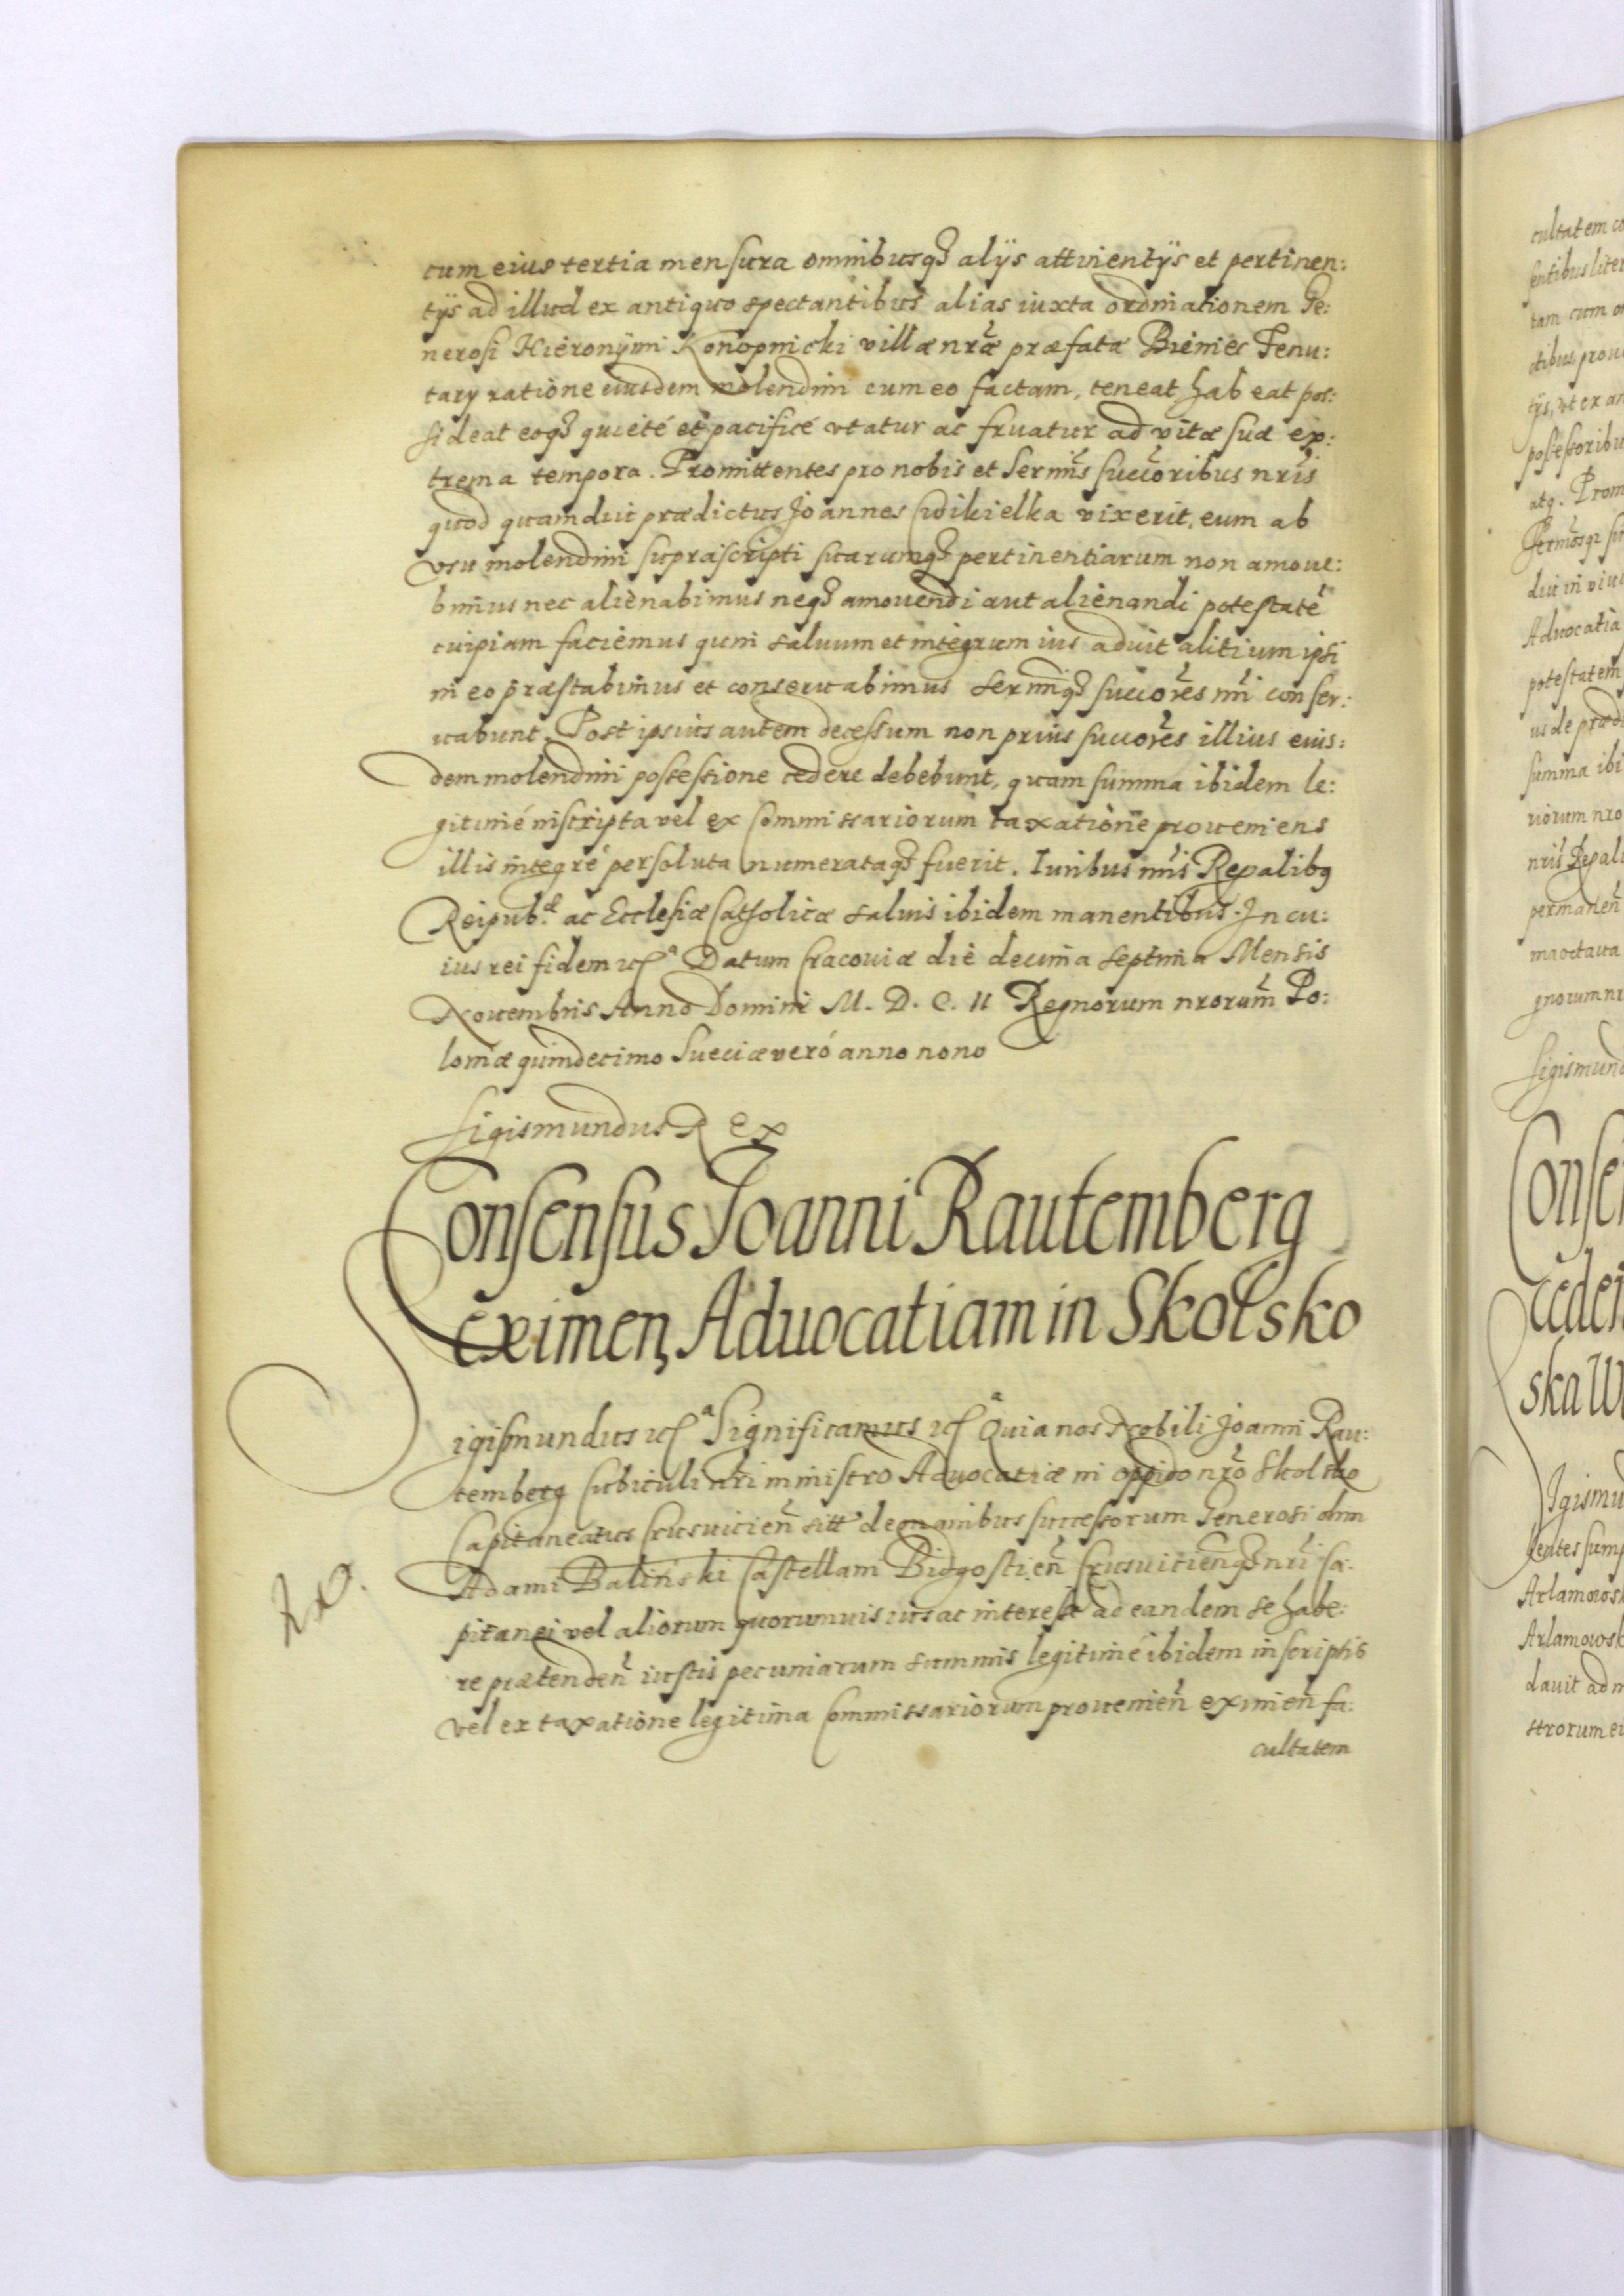 cum eius tertia mensura omnibusq̃ alijs attinentijs et pertinen:
tijs ad illud ex antiquo spectantibus alias iuxta ordinationem Ge:
nerosi Hieronymi Konopnicki villæ nr̃æ præfatæ Bieniec Tenu:
tarij ratione eiusdem molendini cum eo factam, teneat habeat pos:
sideat eoq̃ quieté et pacificé vtatur ac fruatur ad vitæ suæ ex:
trema tempora. Promittentes pro nobis et Serm̃is succ̃oribus nr̃is
quod quamdiu prædictus Joannes Cidikielka vixerit, eum ab
vsu molendini suprascripti suarumq̃ pertinentiarum non amoue:
bimus nec alienabimus neq̃ amouendi aut alienandi potestatẽ
cuipiam faciemus quin saluum et integrum ius aduitalitium ipsi
in eo præstabimus et conseruabimus sermiq̃ succõres nr̃i conser:
uabunt. Post ipsius autem decessum non prius succõres illius eius:
dem molendini possessione cedere debebunt, quam summa ibidem le:
gitimé inscripta vel ex Commissariorum taxatione proueniens
illis integré persoluta numerataq̃ fuerit. Iuribus nr̃is Regalibq
Reipub.æ ac Ecclesiæ Catholicæ saluis ibidem manentibus. In cu:
ius rei fidem etc.a Datum Cracouiæ die decima septima Mensis
Nouembris Anno Domini M. D. C. II Regnorum nrorum̃ Po:
loniæ quindecimo Sueciæ veró anno nono
Sigismundus Rex
Consensus Joanni Rautemberg
eximen̨ Aduocatiam in Skolsko
igismundus etc.a Significamus etc.a Quia nos Nobili Joanni Rau:
temberg Cubiculi nr̃i ministro Aduocatiæ in oppido nr̃o Skolsko
Capitaneatus Crusuicien̄ sitæ de manibus successorum Generosi olim
Adami Baliński Castellani Bidgostien̄ Crusuicienq̃ nr̃i Ca:
pitanei vel aliorum quorumuis ius ac interesse ad eandem se habe:
re prætenden̄ iustis pecuniarum summis legitimé ibidem inscriptis
vel ex taxatione legitima Commissariorum prouenien̄ eximen̄ fa:
cultatem